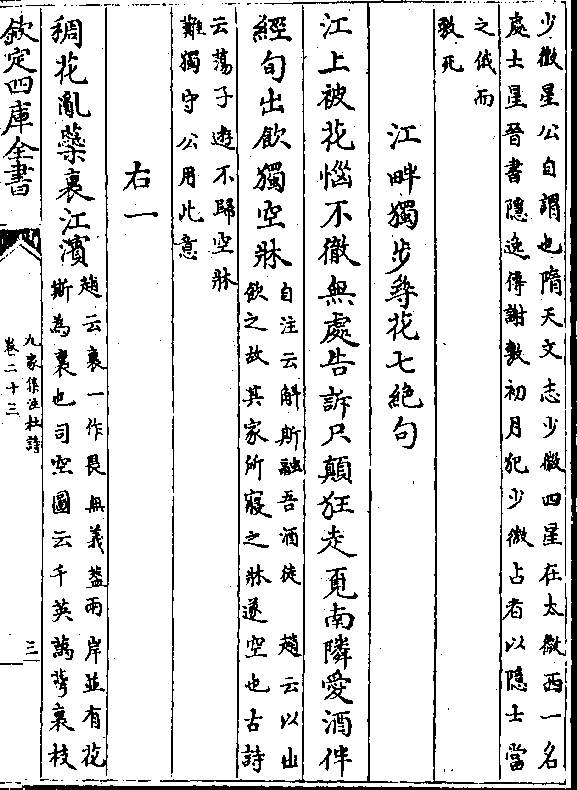 少微星公自謂也隋天文志少微四星在太微西一名
處士星晉書隱逸傳謝敷初月犯少微占者以隱士當
之俄而
敷死
江畔獨步尋花七絶句
江上被花惱不徹無處告訴只顛狂走覓南隣愛酒伴
經旬出飲獨空牀
自注云斛斯融吾酒徒 趙云以出
飲之故其家所寢之牀遂空也古詩
云蕩子逰不歸空牀
難獨守公用此意
右一
稠花亂蘂裏江濱
趙云裹一作畏無義葢兩岸並有花
斯為裹也司空圖云千英萬萼裹枝
欽定四庫全書
九家集注杜詩
卷二十三
三